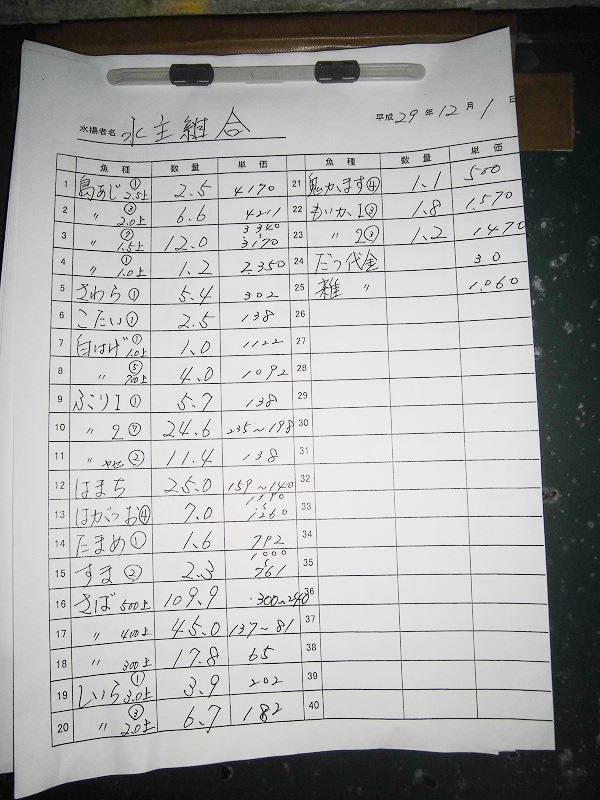 水揚者名 水主組合
平成29年12月1日
魚種 数量 単価 魚種 数量 単価
1 島あじ ① 2.5上 2.5 4170
2 〃 ③ 2.0上 6.6 4211
3 〃 ⑦ 1.5上 12.0 3340~3170
4 〃 ① 1.0上 1.2 2,350
5 さわら ① 5.4 302
6 こたい ① 2.5 138
7 白はげ ① 1.0上 1.0 1122
8 〃 ⑤ 700上 4.0 1092
9 ぶりI ① 5.7 138
10 〃 2 24.6 235~198
11 〃 ヤセ ② 11.4 138
12 はまち 25.0 159~140
13 はがつお ④ 7.0 1390~1260
14 たまめ ① 1.6 792
15 すま ② 2.3 1000~761
16 さば 500上 109.9 300~240
17 〃 400上 45.0 137~81
18 〃 300上 17.8 65
19 しいら ① 3.0上 3.9 202
20 〃 ③ 2.0上 6.7 182
21 かます ④ 1.1 500
22 もいかI ③ 1.8 1,570
23 〃 2 ③ 1.2 1470
24 だつ代金 30
25 雑 〃 1,060
26
27
28
29
30
31
32
33
34
35
36
37
38
39
40